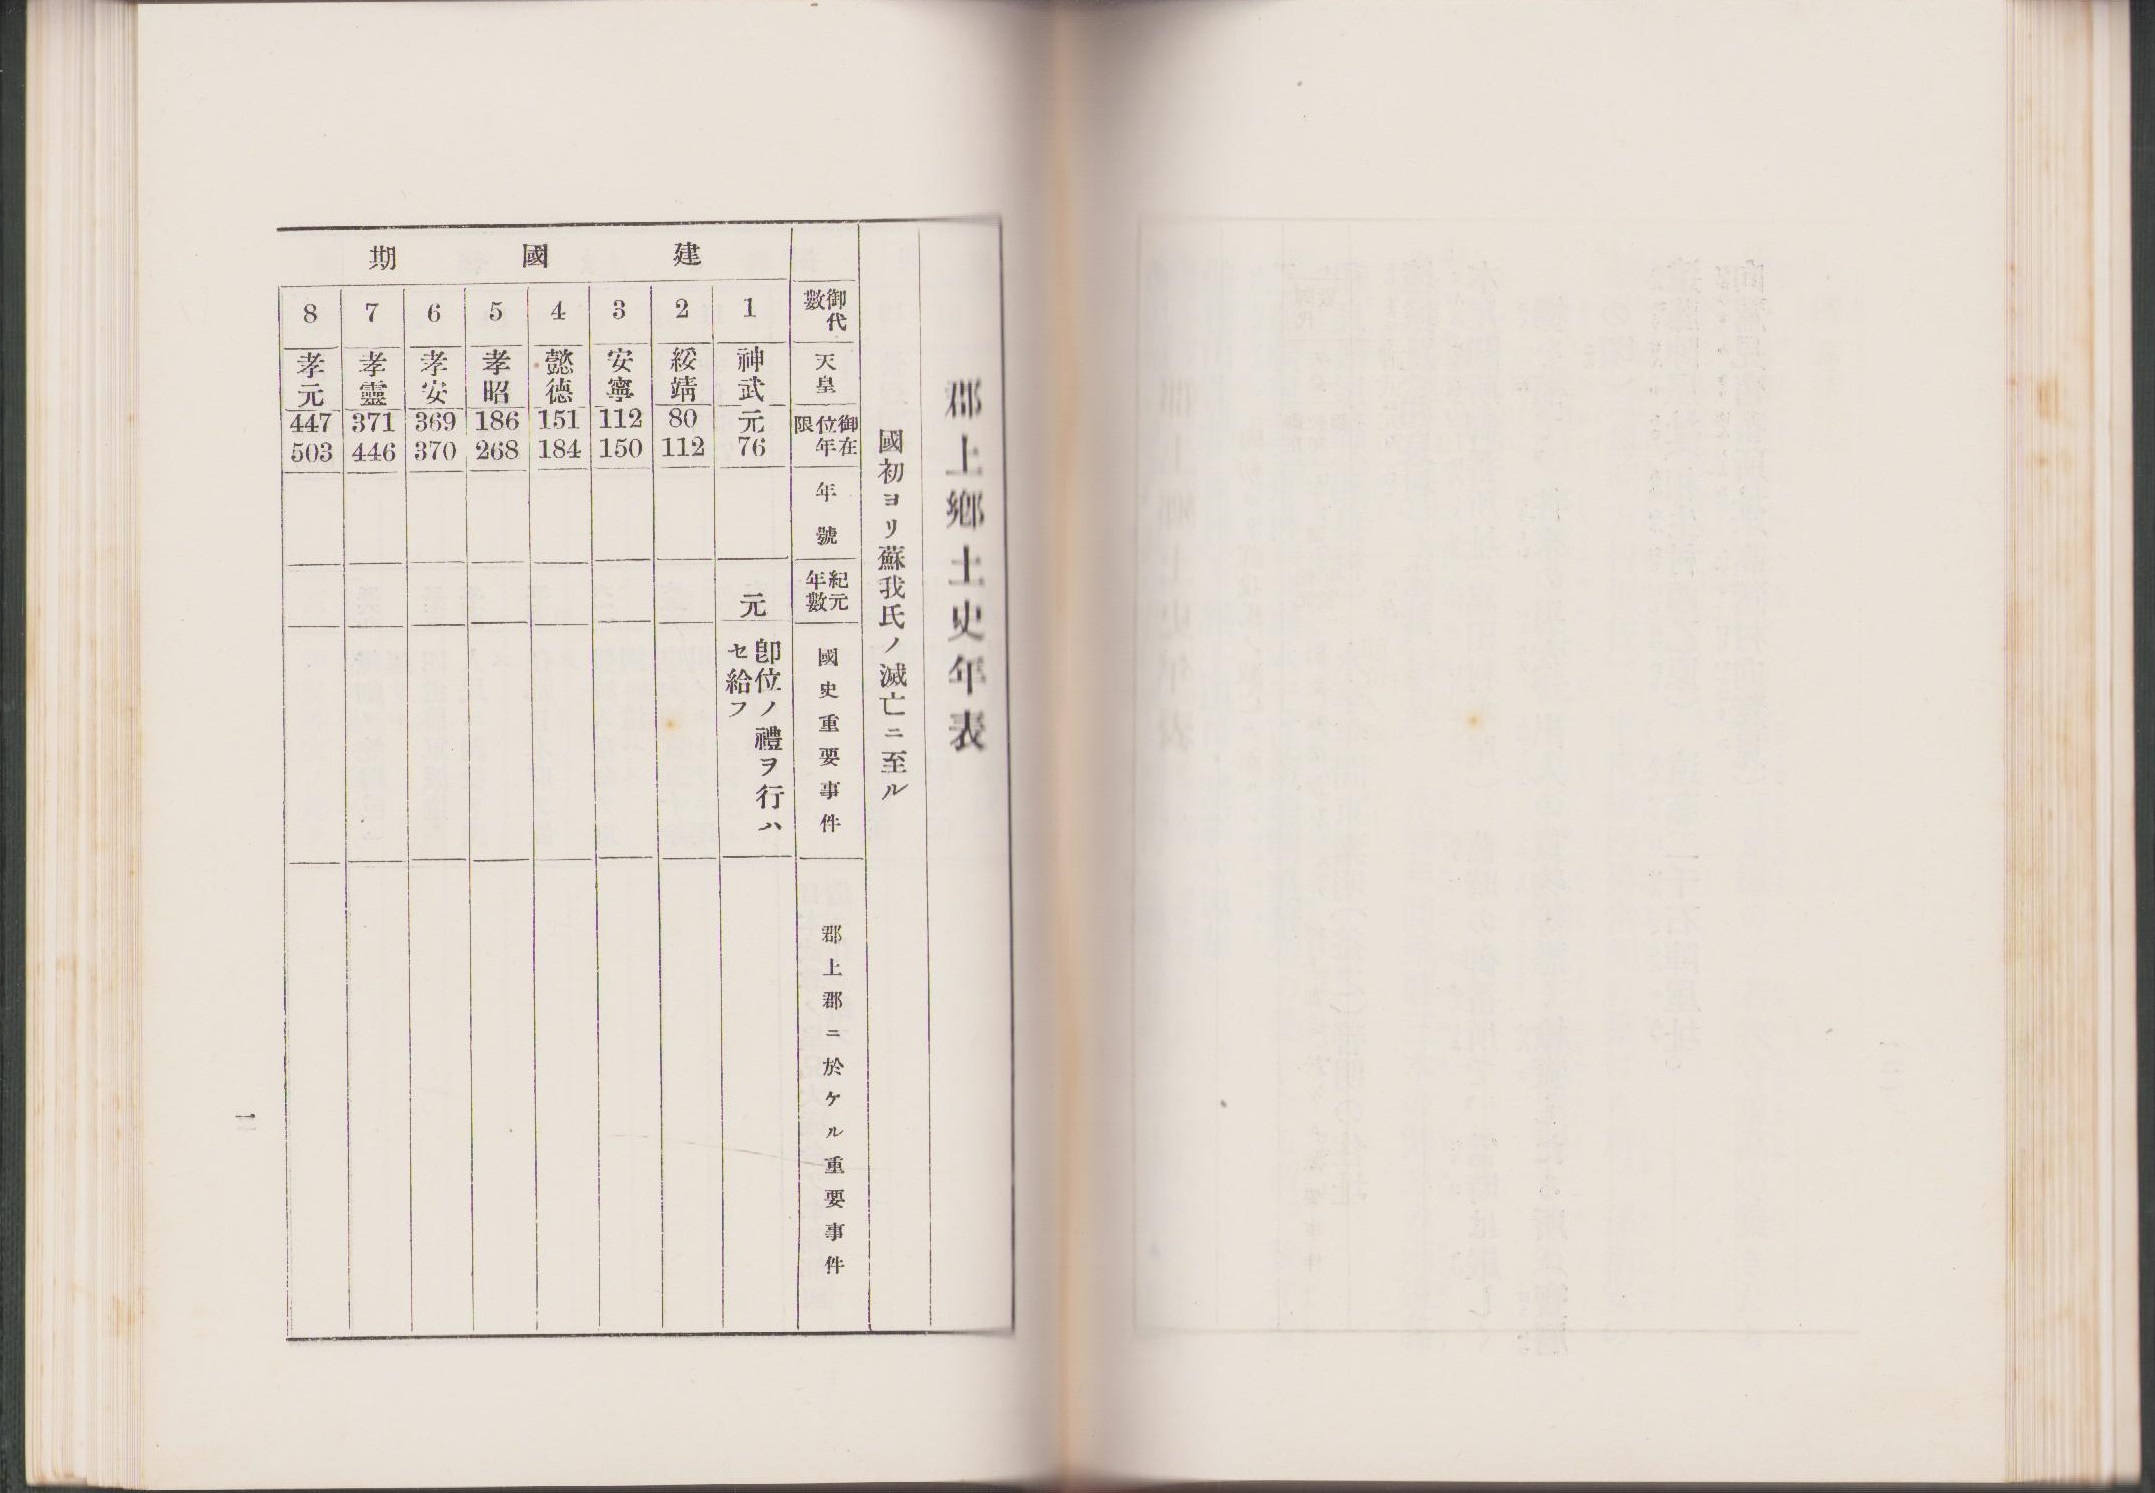 郡上鄕土史年表
國初ヨリ蘇我氏ノ滅亡ニ至ル
御代數
天皇
御在位年限
年號
紀元年數
國史重要事件
郡上郡ニ於ケル重要事件
建國期
1
神武
元
76
元
卽位ノ禮ヲ行ハ
セ給フ
2
綏靖
80
112
3
安寧
112
150
4
懿德
151
184
5
孝昭
186
268
6
孝安
369
370
7
孝靈
371
446
8
孝元
447
503